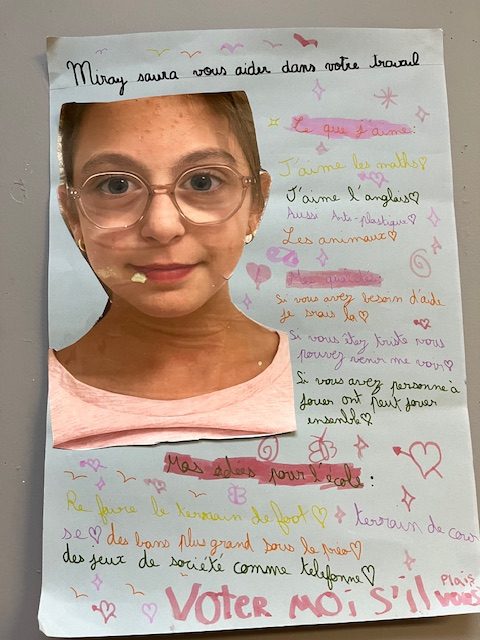 Miray saura vous aider dans votre travail
Ce que j'aime:
J'aime les maths
J'aime l'anglais
Aussi Anti-plastique
Les animaux
Mes qualités
Si vous avez besoin d'aide
je srais la
Si vous êtez triste vous
pouvez venir me voir
Si vous avez personne à
jouer ont peut jouer
ensenble
Mas idées pour l'école:
Re faire le terrain de foot terrain de cour
se des bans plus grand sous le préo
des jeux de société comme telefonne
VOTER MOI S'il Plais
VOUS